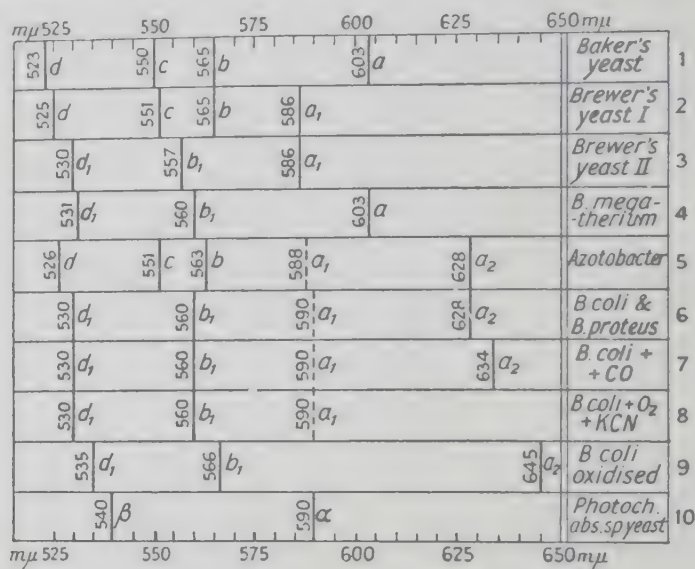 mμ 525 550 575 600 625 650 mμ
523 d 550 c 565 b 603 a Baker's yeast 1
525 d 551 c 565 b 586 a₁ Brewer's yeast I 2
530 d₁ 557 b₁ 586 a₁ Brewer's yeast II 3
531 d₁ 560 b₁ 603 a B. mega- -therium 4
526 d 551 c 563 b 588 a₁ 628 a₂ Azotobacter 5
530 d₁ 560 b₁ 590 a₁ 628 a₂ B coli & B. proteus 6
530 d₁ 560 b₁ 590 a₁ 634 a₂ B. coli + + CO 7
530 d₁ 560 b₁ 590 a₁ B coli + O₂ + KCN 8
535 d₁ 566 b₁ 645 a₂ B coli oxidised 9
540 β 590 α Photoch. abs. sp yeast 10
mμ 525 550 575 600 625 650 mμ